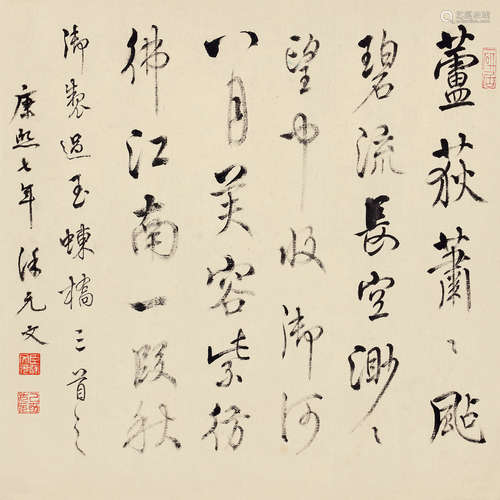 蘆荻蕭〻颭
碧流長空渺〻
望中收御河
八月芙容紫彷
彿江南一段秋
御製過玉蝀橋三首之一
康熙七年 徐元文